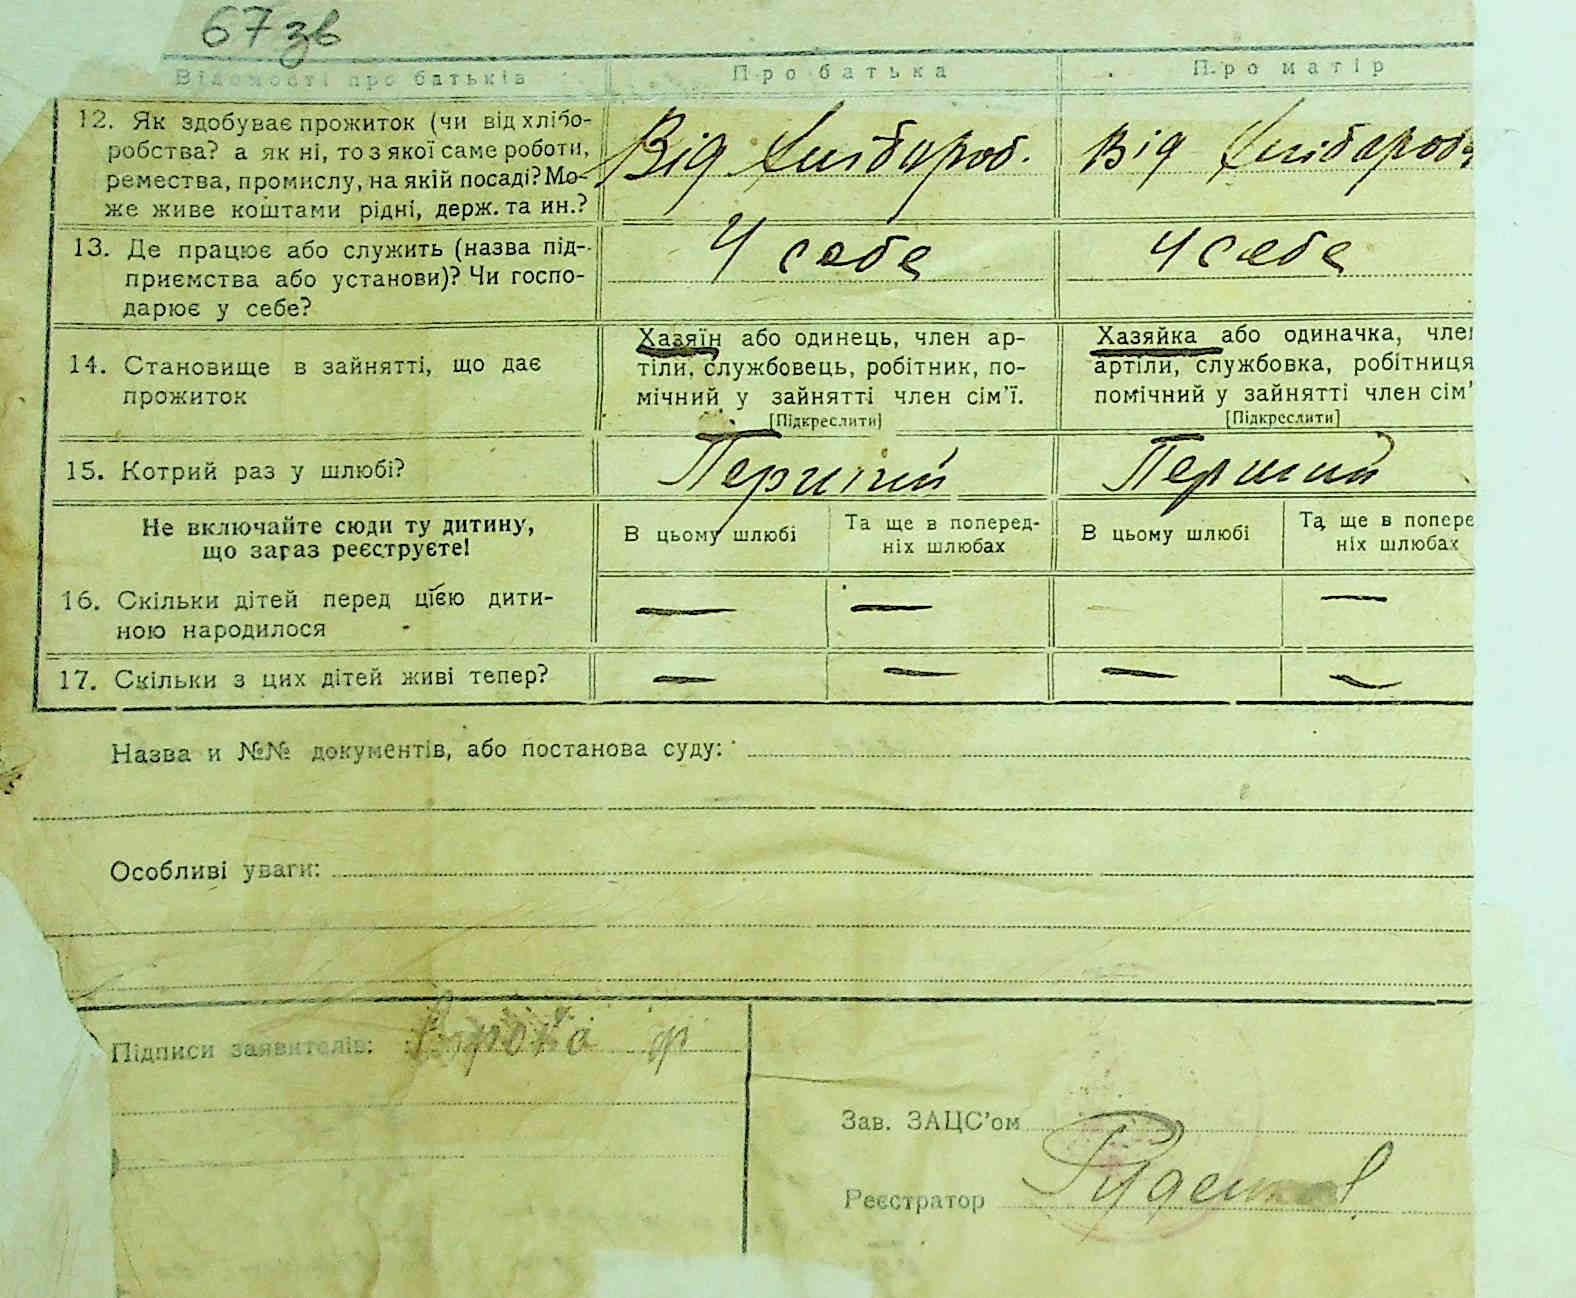 67 зв
Відомості про батьків
Про батька
Про матір
12. Як здобуває прожиток (чи від хлібо-
робства? а як ні, то з якої саме роботи,
ремества, промислу, на якій посаді? Мо-
же живе коштами рідні, держ. та ин.?
Від хлібороб.
Від хлібороб.
13. Де працює або служить (назва під-
приємства або установи)? Чи госпо-
дарює у себе?
У себе
У себе
14. Становище в зайнятті, що дає
прожиток
Хазяїн або одинець, член ар-
тіли, службовець, робітник, по-
мічний у зайнятті член сім'ї.
[Підкреслити]
Хазяйка або одиначка, член
артіли, службовка, робітниця
помічний у зайнятті член сім'
[Підкреслити]
15. Котрий раз у шлюбі?
Перший
Перший
Не включайте сюди ту дитину,
що зараз реєструєте!
В цьому шлюбі
Та ще в поперед-
ніх шлюбах
В цьому шлюбі
Та ще в попере
ніх шлюбах
16. Скільки дітей перед цією дити-
ною народилося
— — —
17. Скільки з цих дітей живі тепер?
— — — —
Назва и №№ документів, або постанова суду:
Особливі уваги:
Підписи заявителів:
Зав. ЗАЦС'ом
Реєстратор